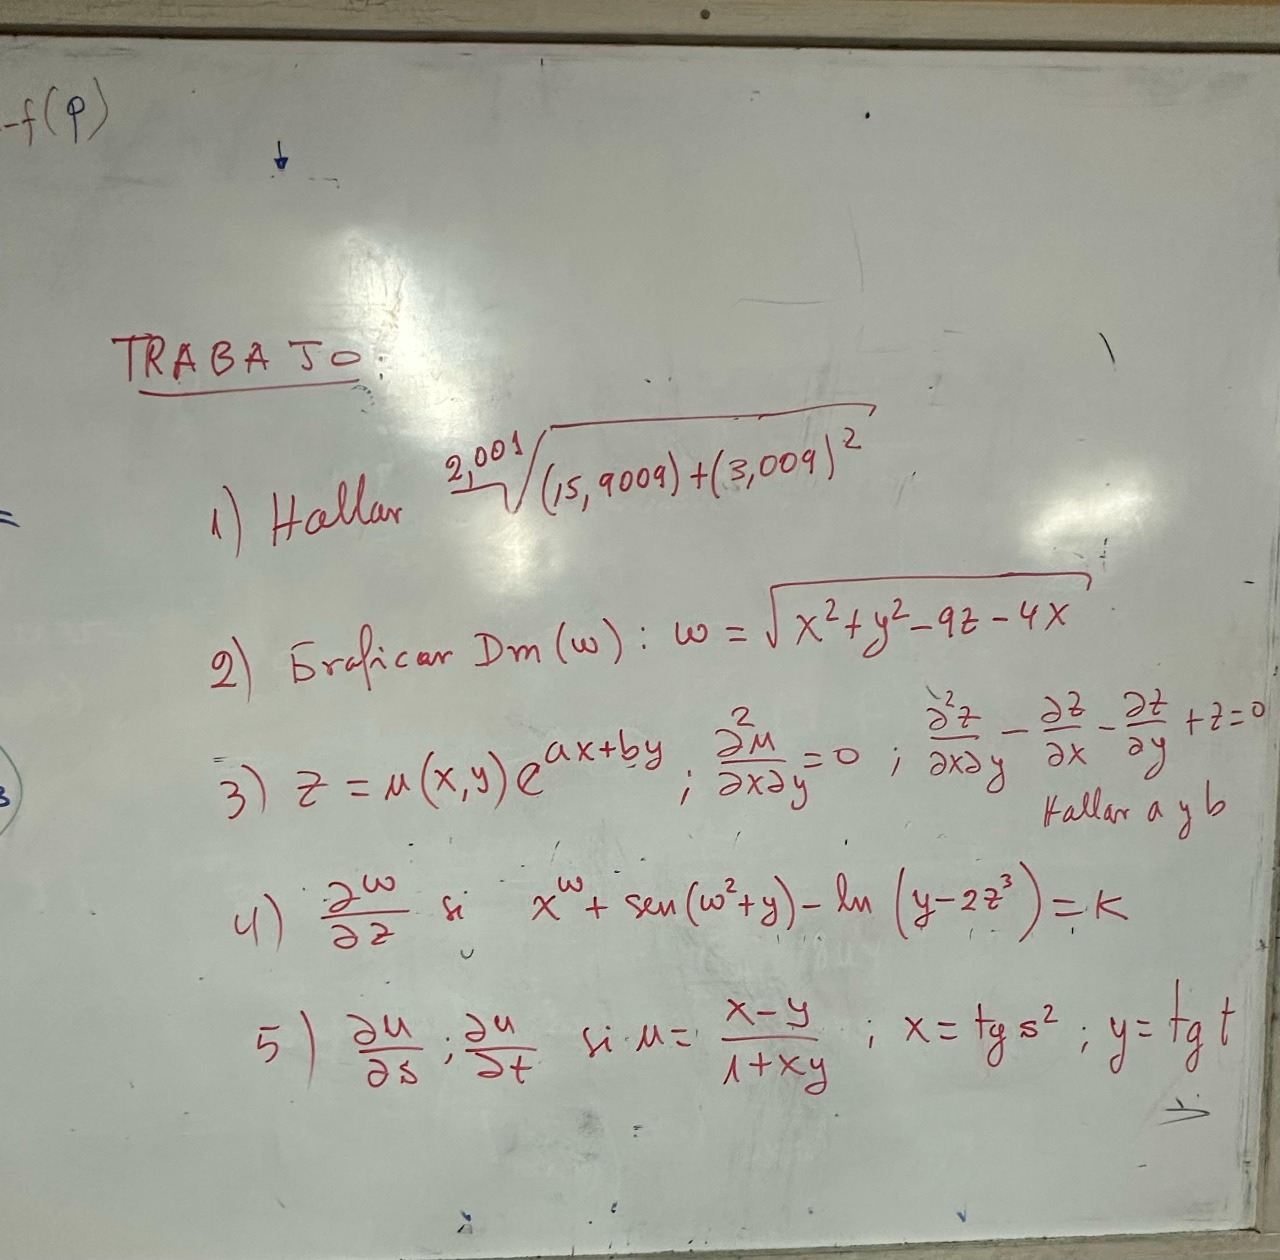 -f(p)
TRABAJO:
1) Hallar \sqrt[2,001]{(15,9009)+(3,009)^2}
2) Graficar Dm(w): w = \sqrt{x^2+y^2-9z-4x}
3) z = u(x,y)e^{ax+by} ; \frac{∂^2u}{∂x∂y}=0 ; \frac{∂^2z}{∂x∂y} - \frac{∂z}{∂x} - \frac{∂z}{∂y} + z=0
Hallar a y b
4) \frac{∂w}{∂z} si x^w + sen(w^2+y) - ln(y-2z^3) = K
5) \frac{∂u}{∂s} ; \frac{∂u}{∂t} si u = \frac{x-y}{1+xy} ; x = tg s^2 ; y = tg t